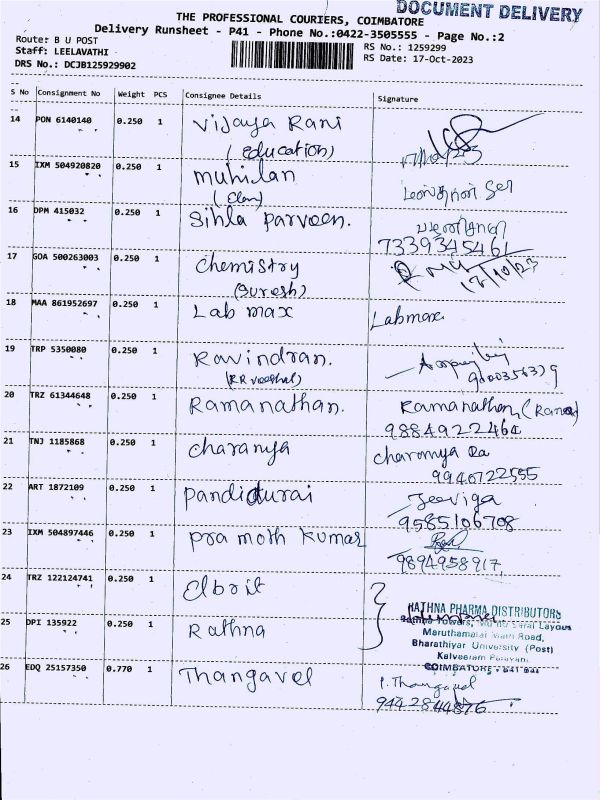 DOCUMENT DELIVERY
THE PROFESSIONAL COURIERS, COIMBATORE
Delivery Runsheet - P41 - Phone No.:0422-3505555 - Page No.:2
Route: B U POST
RS No.: 1259299
Staff: LEELAVATHI
RS Date: 17-Oct-2023
DRS No.: DCJB125929902
S No Consignment No Weight PCS Consignee Details Signature
14 PON 6140140 0.250 1 Vijaya Rani
(Education)
15 IXM 504920820 0.250 1 Muhilan
16 DPM 415032 0.250 1 Sihla Parveen.
7339345461
17 GOA 500263003 0.250 1 Chemistry
(Suresh) 17/10/23
18 MAA 861952697 0.250 1 Lab max Labmax
19 TRP 5350080 0.250 1 Ravindran.
20 TRZ 61344648 0.250 1 Ramanathan. Ramanathan
9884922464
21 TNJ 1185868 0.250 1 Charanya
9940722555
22 ART 1872109 0.250 1 Pandidurai Jeeviga
9585106708
23 IXM 504897446 0.250 1 Pramoth Kumar
9894958917
24 TRZ 122124741 0.250 1 Elbrit
RATHNA PHARMA DISTRIBUTORS
25 DPI 135922 0.250 1 Rathna
Maruthamalai Main Road,
Bharathiyar University (Post)
COIMBATORE
26 EDQ 25157350 0.770 1 Thangavel P. Thangavel